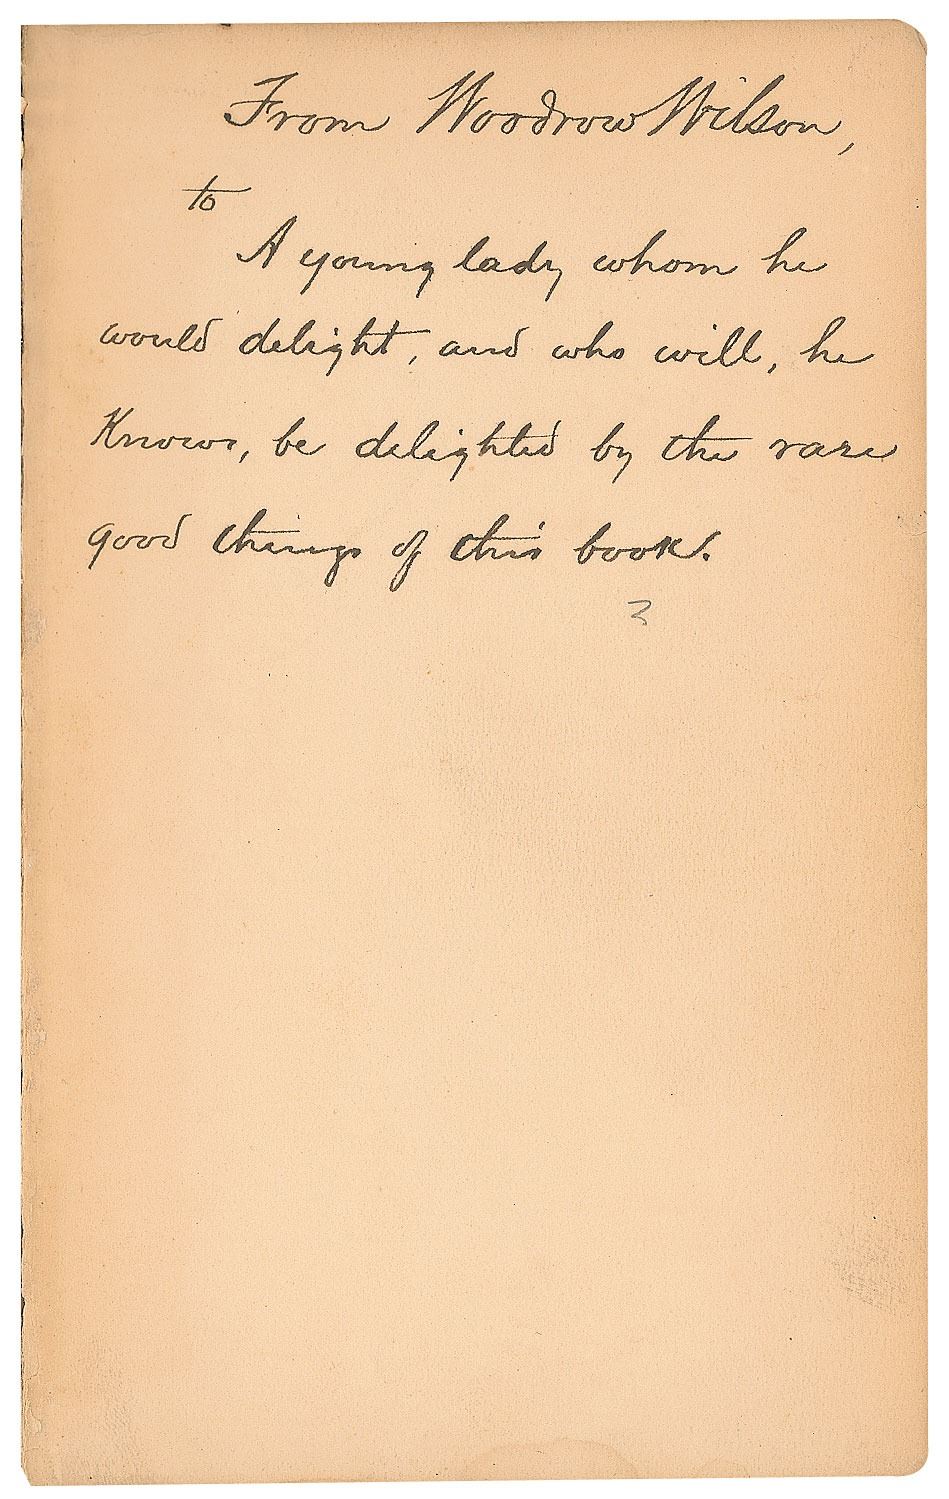 From Woodrow Wilson,
to
A young lady whom he
would delight, and who will, he
knows, be delighted by the rare
good things of this book.